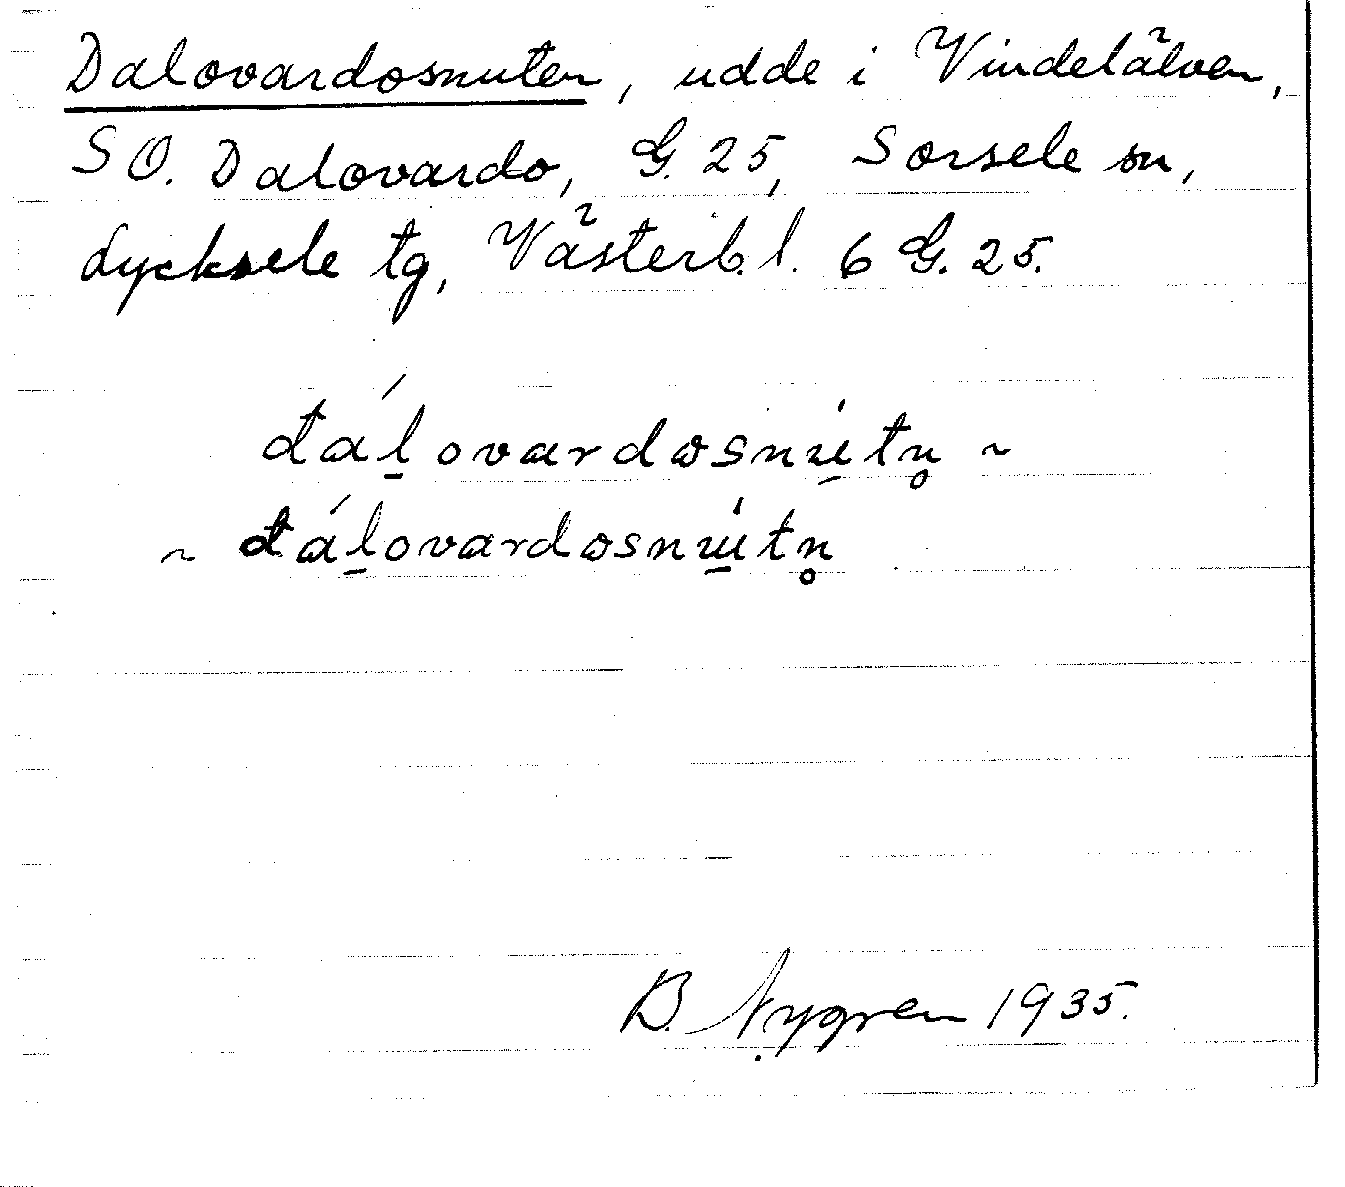 Dalovardosnuten, udde i Vindelälven,
SO. Dalovardo, G. 25, Sorsele sn,
Lycksele tg, Västerb. l. 6 G. 25.
dáḻovardosnu̱̍tn̥ ~
~ dáḻovardosnu̱̍tn̥
B. Nygren 1935.